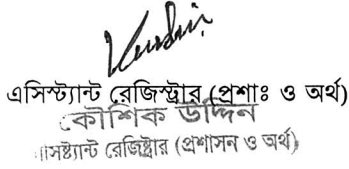 এসিস্ট্যান্ট রেজিস্ট্রার (প্রশাঃ ও অর্থ)
কৌশিক উদ্দিন
সিষ্ট্যান্ট রেজিষ্ট্রার (প্রশাসন ও অর্থ)